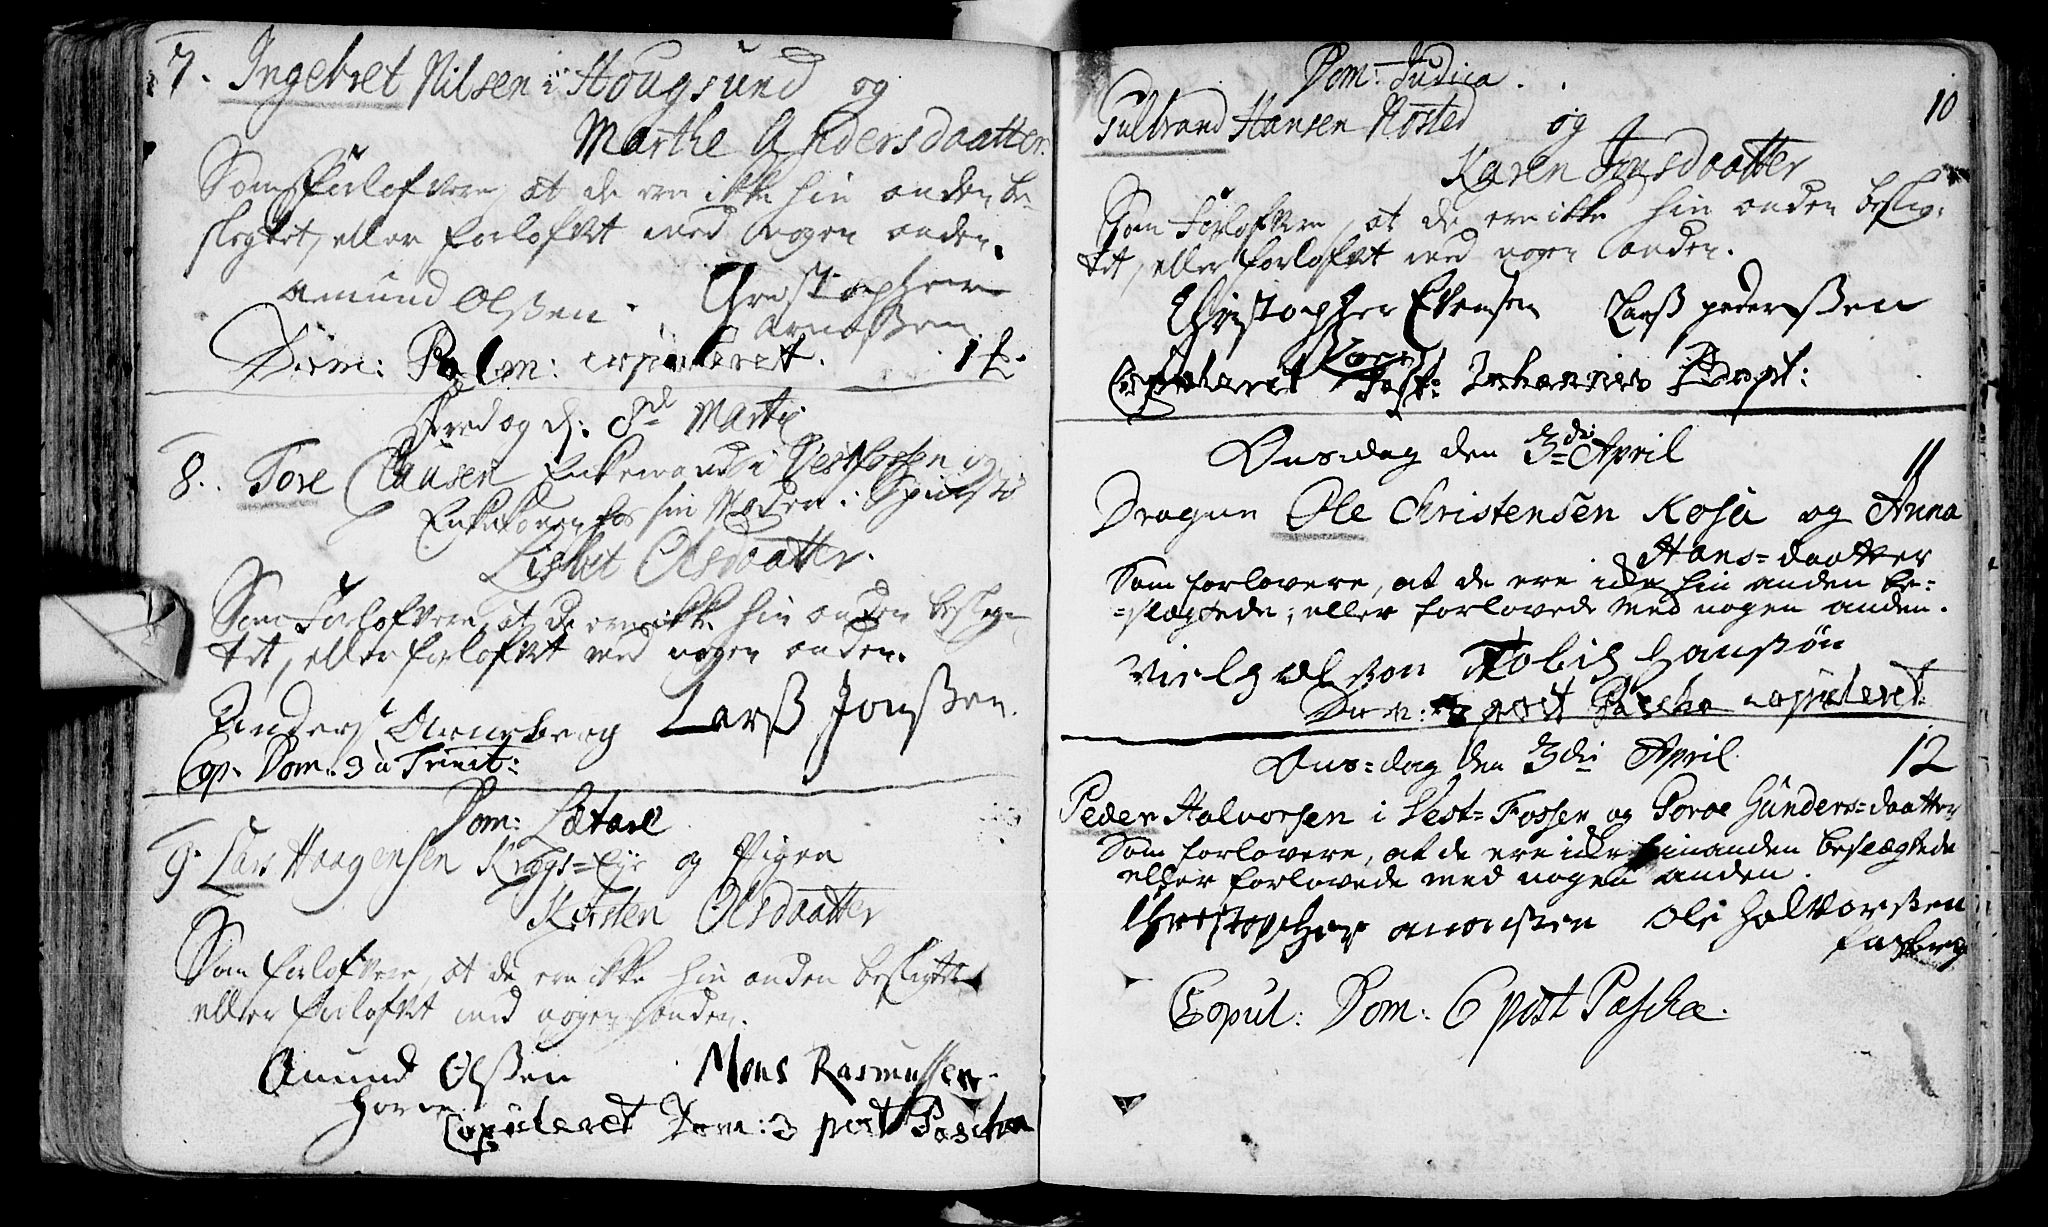 7. Ingebret Nilsen i Hougsund og
Marthe Andersdaatter.
Som Forlofvere, at de ere ikke hin anden be-
slegtet, eller forlofvet med nogen anden.
Amund Olßen. Christopher
Arnesßen
Dom: Palm: copuleret.
Fredag d: 8de Martij
8. Tore Clausen Enkemand i Vestfossen og
Lisbet Olsdaatter.
Som Forlofvere, at de ere ikke hin anden besleg-
tet, eller forlofvet med nogen anden.
Anders Larß Jonßen.
Cop. Dom. 3 a Trinit:
Dom: Lætare
9. Lars Haagensen Krogs-Eye og Pigen
Kirsten Olsdaatter
Som forlofvere, at de ere ikke hin anden beslegtet
eller forlofvet med nogen anden.
Amund Olßen Mons Rasmussen
Copuleret Dom: 3 post Pascha
Dom: Judica.
10
Gulbrand Hansen Rosted og
Karen Jensdaatter
Som Forlofvere, at de ere ikke hin anden besleg-
tet, eller forlofvet med nogen anden.
Christopher Evensen Larß pederßen
Copuleret Fest: Johannis Bapt:
Onsdag den 3die April
11
Dragun Ole Christensen Kosa og Anna
Hans=daatter
Som forlovere, at de ere icke hin anden be=
=slægtede, eller forlovede med nogen anden.
Nielß Olßon Tobias Hanßøn
Dom: post Pascha copuleret.
Ons=dag den 3die April
12
Peder Halvorsen i Vest=Fossen og Goroe Gunders=daatter
Som forlovere, at de ere icke hinanden beslægtede
eller forlovede med nogen anden.
Christopher Ole Halvorßen
Copul: Dom: 6 post Pascha.